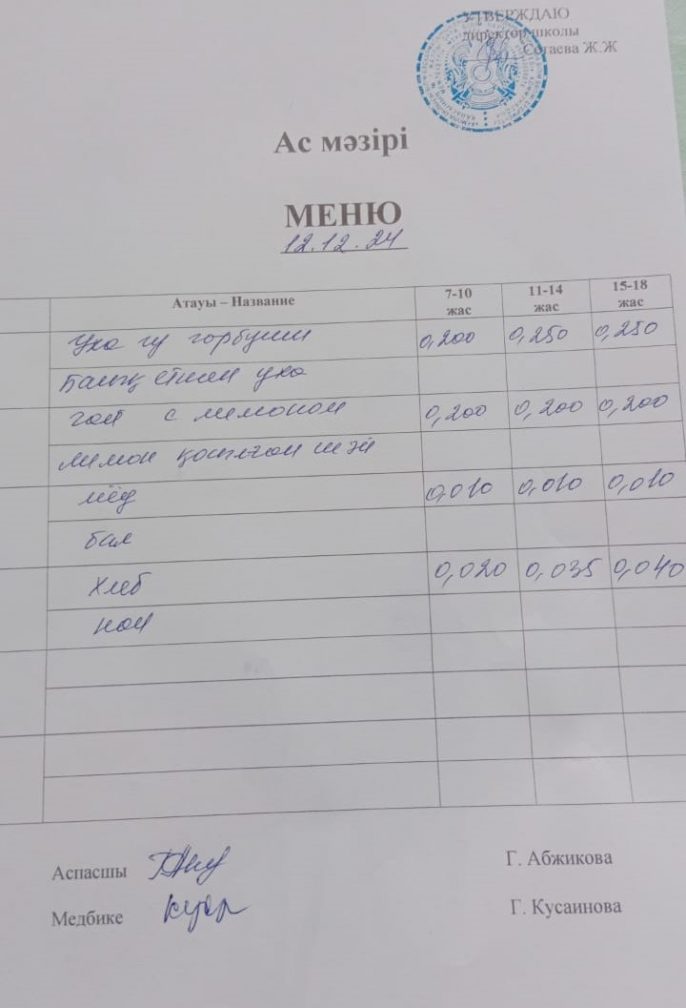 УТВЕРЖДАЮ
директор школы
Сотаева Ж.Ж
Ас мәзірі
МЕНЮ
12.12.24
Атауы – Название 7-10 жас 11-14 жас 15-18 жас
Уха из горбуши 0,200 0,250 0,250
Балық етінен уха
Чай с лимоном 0,200 0,200 0,200
Лимон қосылған шәй
мёд 0,010 0,010 0,010
бал
хлеб 0,020 0,035 0,040
нан
Аспасшы Г. Абжикова
Медбике Г. Кусаинова